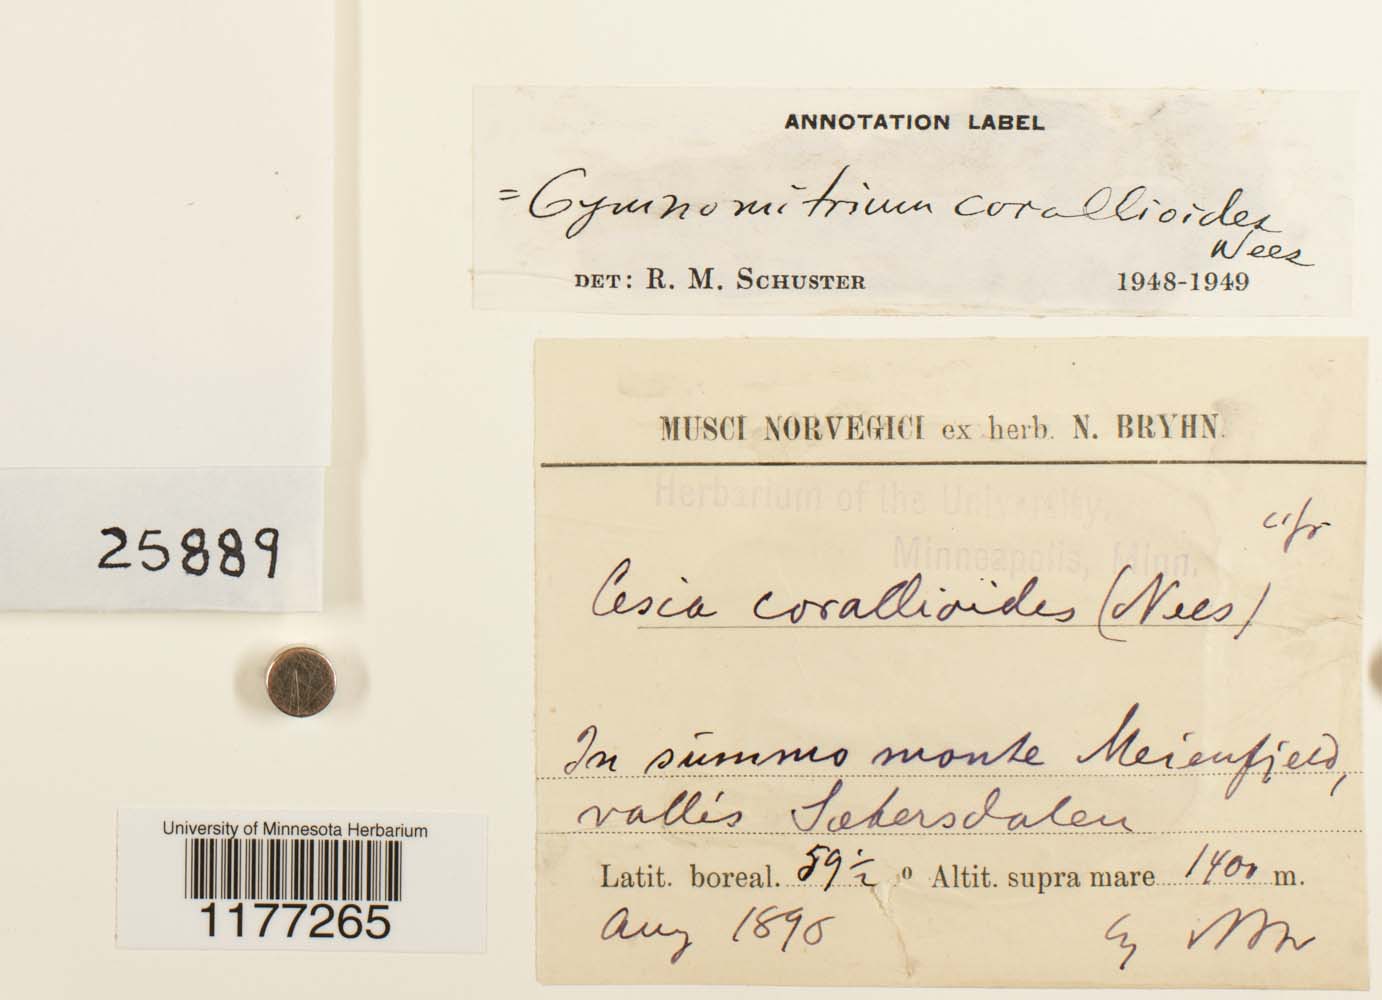 ANNOTATION LABEL
= Gymnomitrium corallioides
Nees
DET: R. M. SCHUSTER 1948-1949
MUSCI NORVEGICI ex herb. N. BRYHN.
Herbarium of the University,
Minneapolis, Minn.
c/fr
Cesia corallioides (Nees)
In summo monte Meienfjeld,
vallis Sætersdalen
Latit. boreal. 59½ º Altit. supra mare 1400 m.
Aug 1890
25889
University of Minnesota Herbarium
1177265